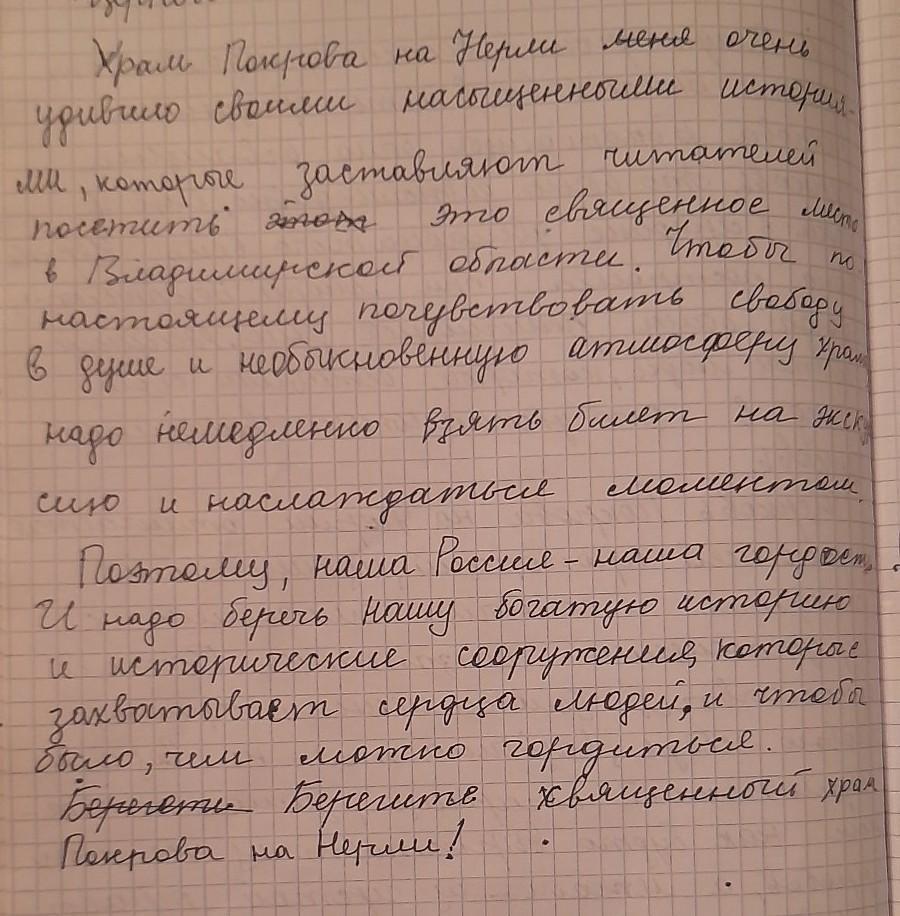 Храм Покрова на Нерли меня очень
удивило своими насыщенными история-
ми, которые заставляют читателей
посетить это священное место
в Владимирской области. Чтобы по
настоящему почувствовать свободу
в душе и необыкновенную атмосферу храма
надо немедленно взять билет на экску
сию и наслаждаться моментом.
Поэтому, наша Россия – наша гордость.
И надо беречь нашу богатую историю
и исторические сооружения, которые
захватывает сердца людей, и чтобы
было, чем можно гордиться.
Берегети Берегите священный храм
Покрова на Нерли!